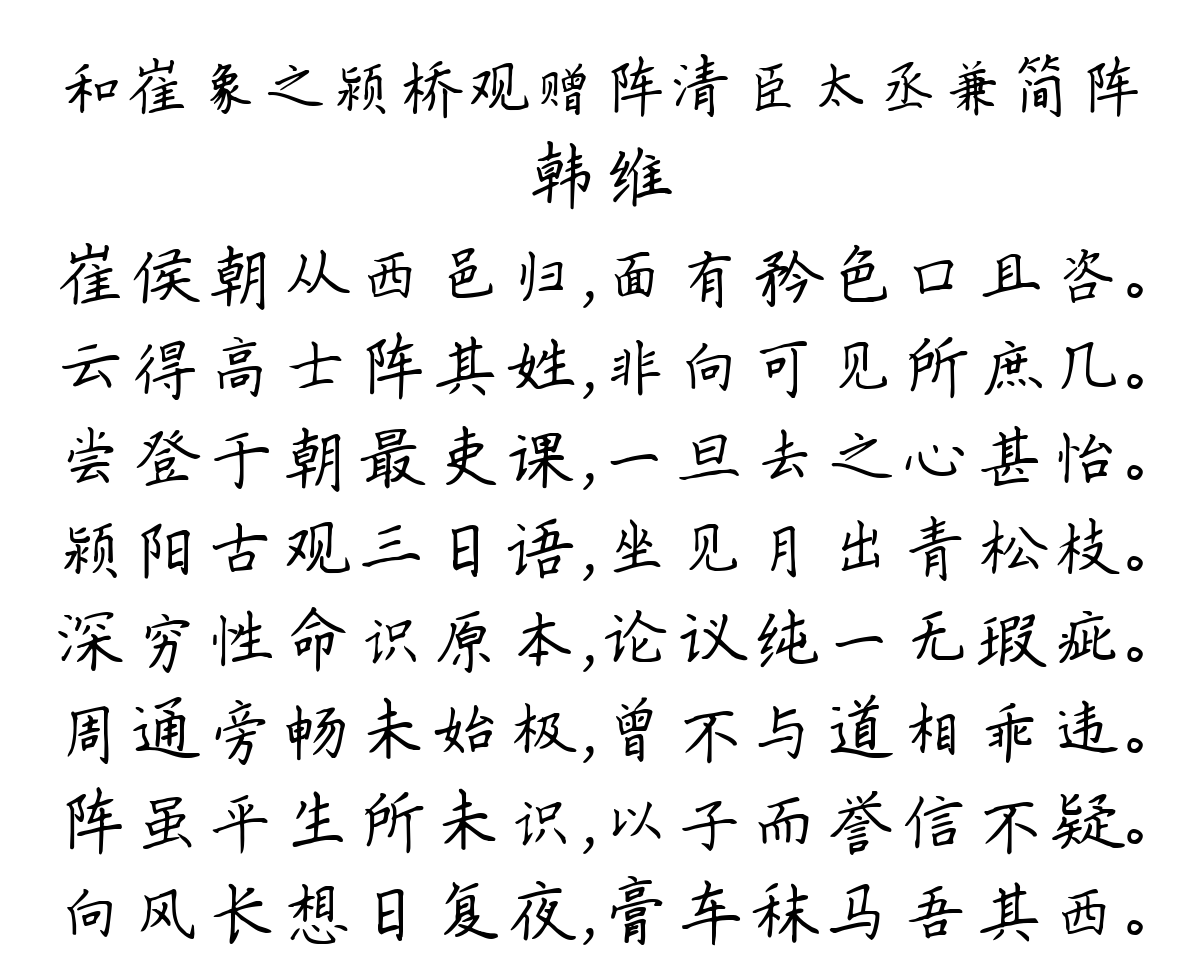 和崔象之颍桥观赠阵清臣太丞兼简阵
韩维
崔侯朝从西邑归,面有矜色口且咨。
云得高士阵其姓,非向可见所庶几。
尝登于朝最吏课,一旦去之心甚怡。
颍阳古观三日语,坐见月出青松枝。
深穷性命识原本,论议纯一无瑕疵。
周通旁畅未始极,曾不与道相乖违。
阵虽平生所未识,以子而誉信不疑。
向风长想日复夜,膏车秣马吾其西。